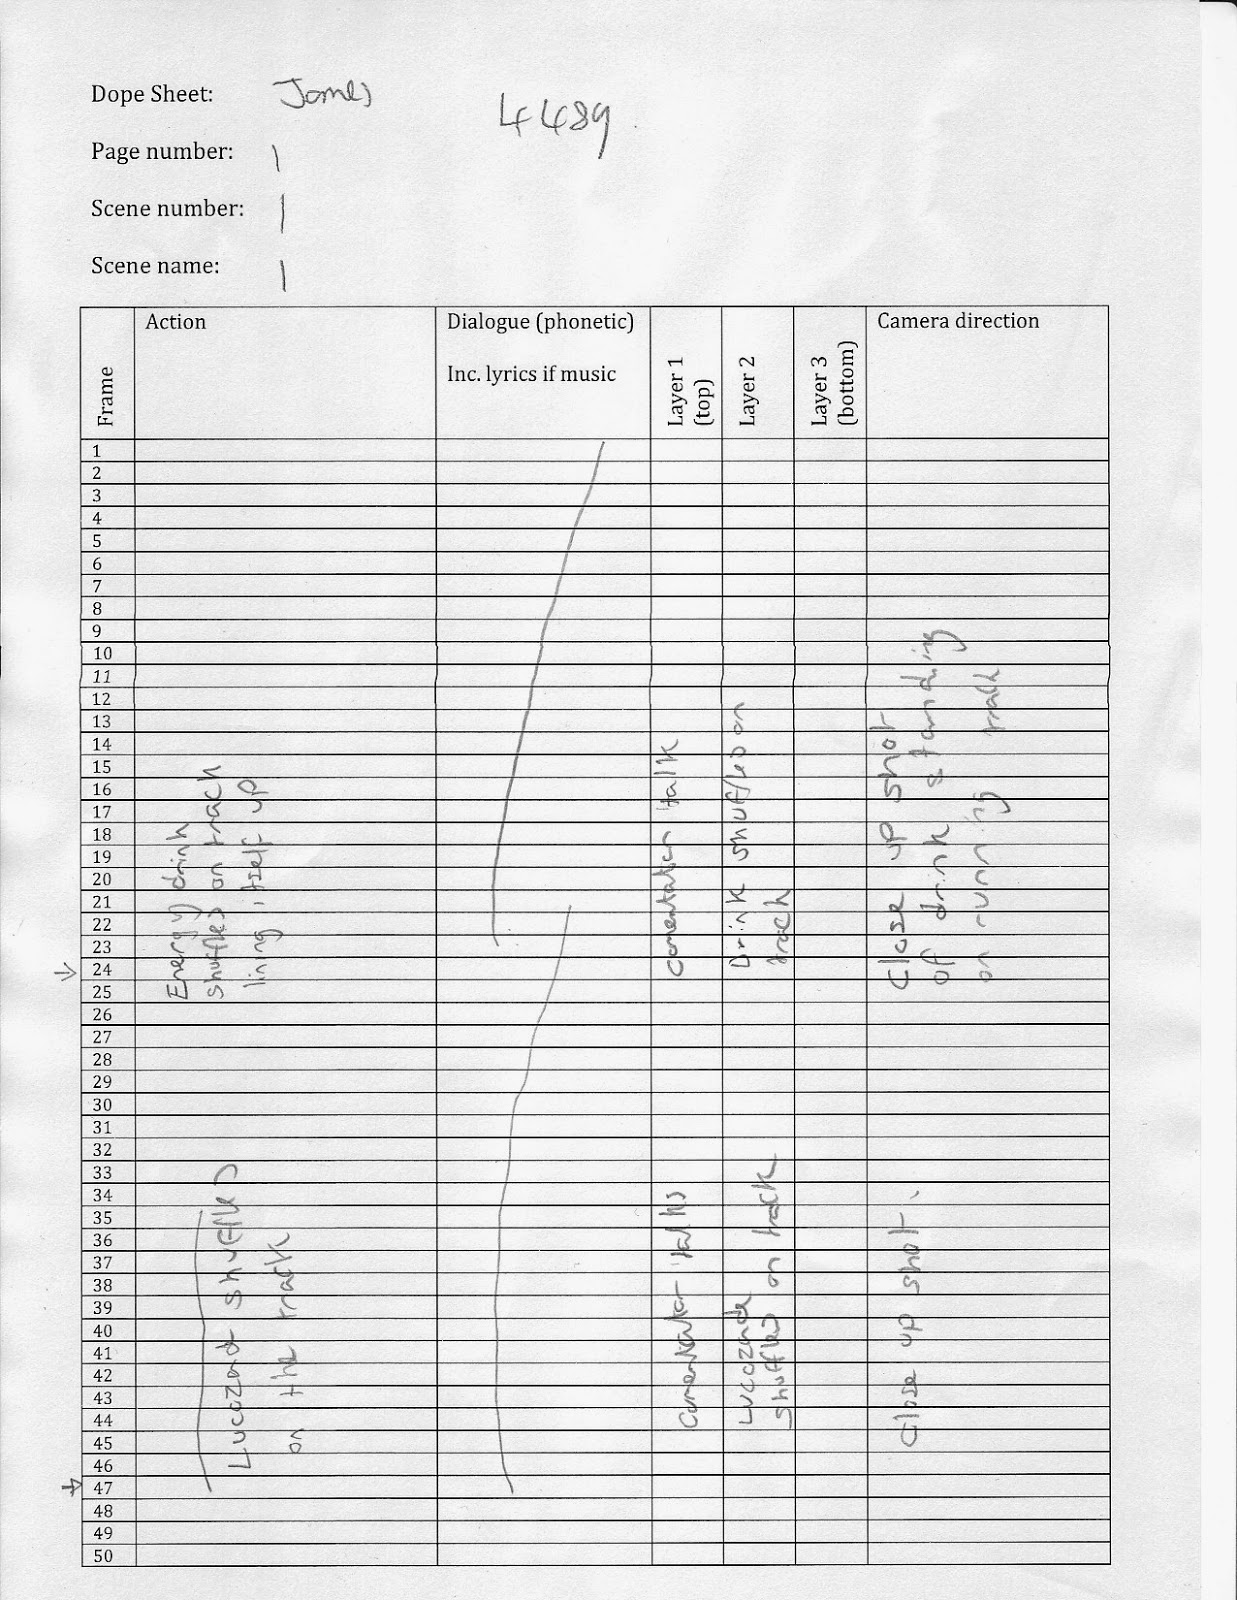 Dope Sheet: James
4489
Page number: 1
Scene number: 1
Scene name: 1
Frame
Action
Dialogue (phonetic)
Inc. lyrics if music
Layer 1
(top)
Layer 2
Layer 3
(bottom)
Camera direction
1
2
3
4
5
6
7
8
9
10
11
12
13
14
15
16
17
18
19
20
21
22
23
24
25
26
27
28
29
30
31
32
33
34
35
36
37
38
39
40
41
42
43
44
45
46
47
48
49
50
Energy drink
shuffles on track
lining itself up
comentator talk
Drink shuffles on
track
Close up shot
of drink standing
on running track
Lucozade shuffles
on the track
Comentator talks
Lucozade
shuffles on track
Close up shot.